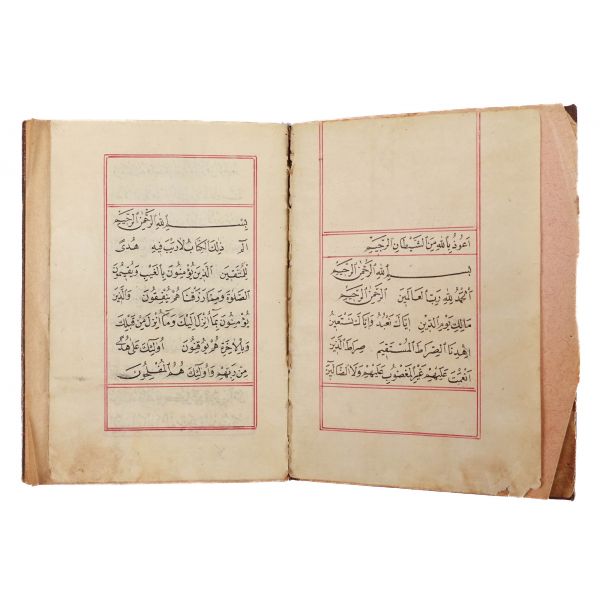 اعوذ بالله من الشيطان الرجيم
بسم الله الرحمن الرحيم
الحمد لله رب العالمين الرحمن الرحيم
مالك يوم الدين اياك نعبد واياك نستعين
اهدنا الصراط المستقيم صراط الذين
انعمت عليهم غير المغضوب عليهم ولا الضالين
بسم الله الرحمن الرحيم
الم ذلك الكتاب لا ريب فيه هدى
للمتقين الذين يؤمنون بالغيب ويقيمون
الصلوة ومما رزقناهم ينفقون والذين
يؤمنون بما انزل اليك وما انزل من قبلك
وبالاخرة هم يوقنون اولئك على هدى
من ربهم واولئك هم المفلحون